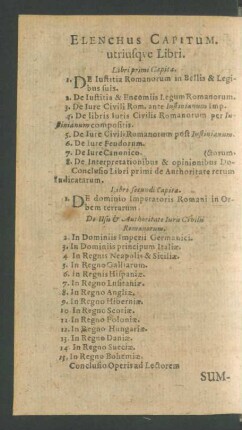 ELENCHUS CAPITUM.
utriusqve Libri.
Libri primi Capita.
1. DE Iustitia Romanorum in Bellis & Legi-
bus suis.
2. De Iustitia & Encomiis Legum Romanorum.
3. De Iure Civili Rom. ante Justinianum imp.
4. De libris Iuris Civilis Romanorum per Ju-
stinianum compositis.
5. De Iure Civili Romanorum post Justinianum.
6. De Iure Feudorum.
7. De Iure Canonico. (ctorum.
8. De Interpretationibus & opinionibus Do-
Conclusio Libri primi de Authoritate rerum
Iudicatarum.
Libri secundi Capita.
1. DE dominio Imperatoris Romani in Or-
bem terrarum.
De Usu & Authoritate Iuris Civilis
Romanorum.
2. In Dominiis Imperii Germanici.
3. In Dominiis principum Italiæ.
4. In Regnis Neapolis & Siciliæ.
5. In Regno Galliarum.
6. In Regnis Hispaniæ.
7. In Regno Lusitaniæ.
8. In Regno Angliæ.
9. In Regno Hiberniæ.
10. In Regno Scotiæ.
11. In Regno Poloniæ.
12. In Regno Hungariæ.
13. In Regno Daniæ.
14. In Regno Sueciæ.
15. In Regno Bohemiæ.
Conclusio Operis ad Lectorem
SUM-